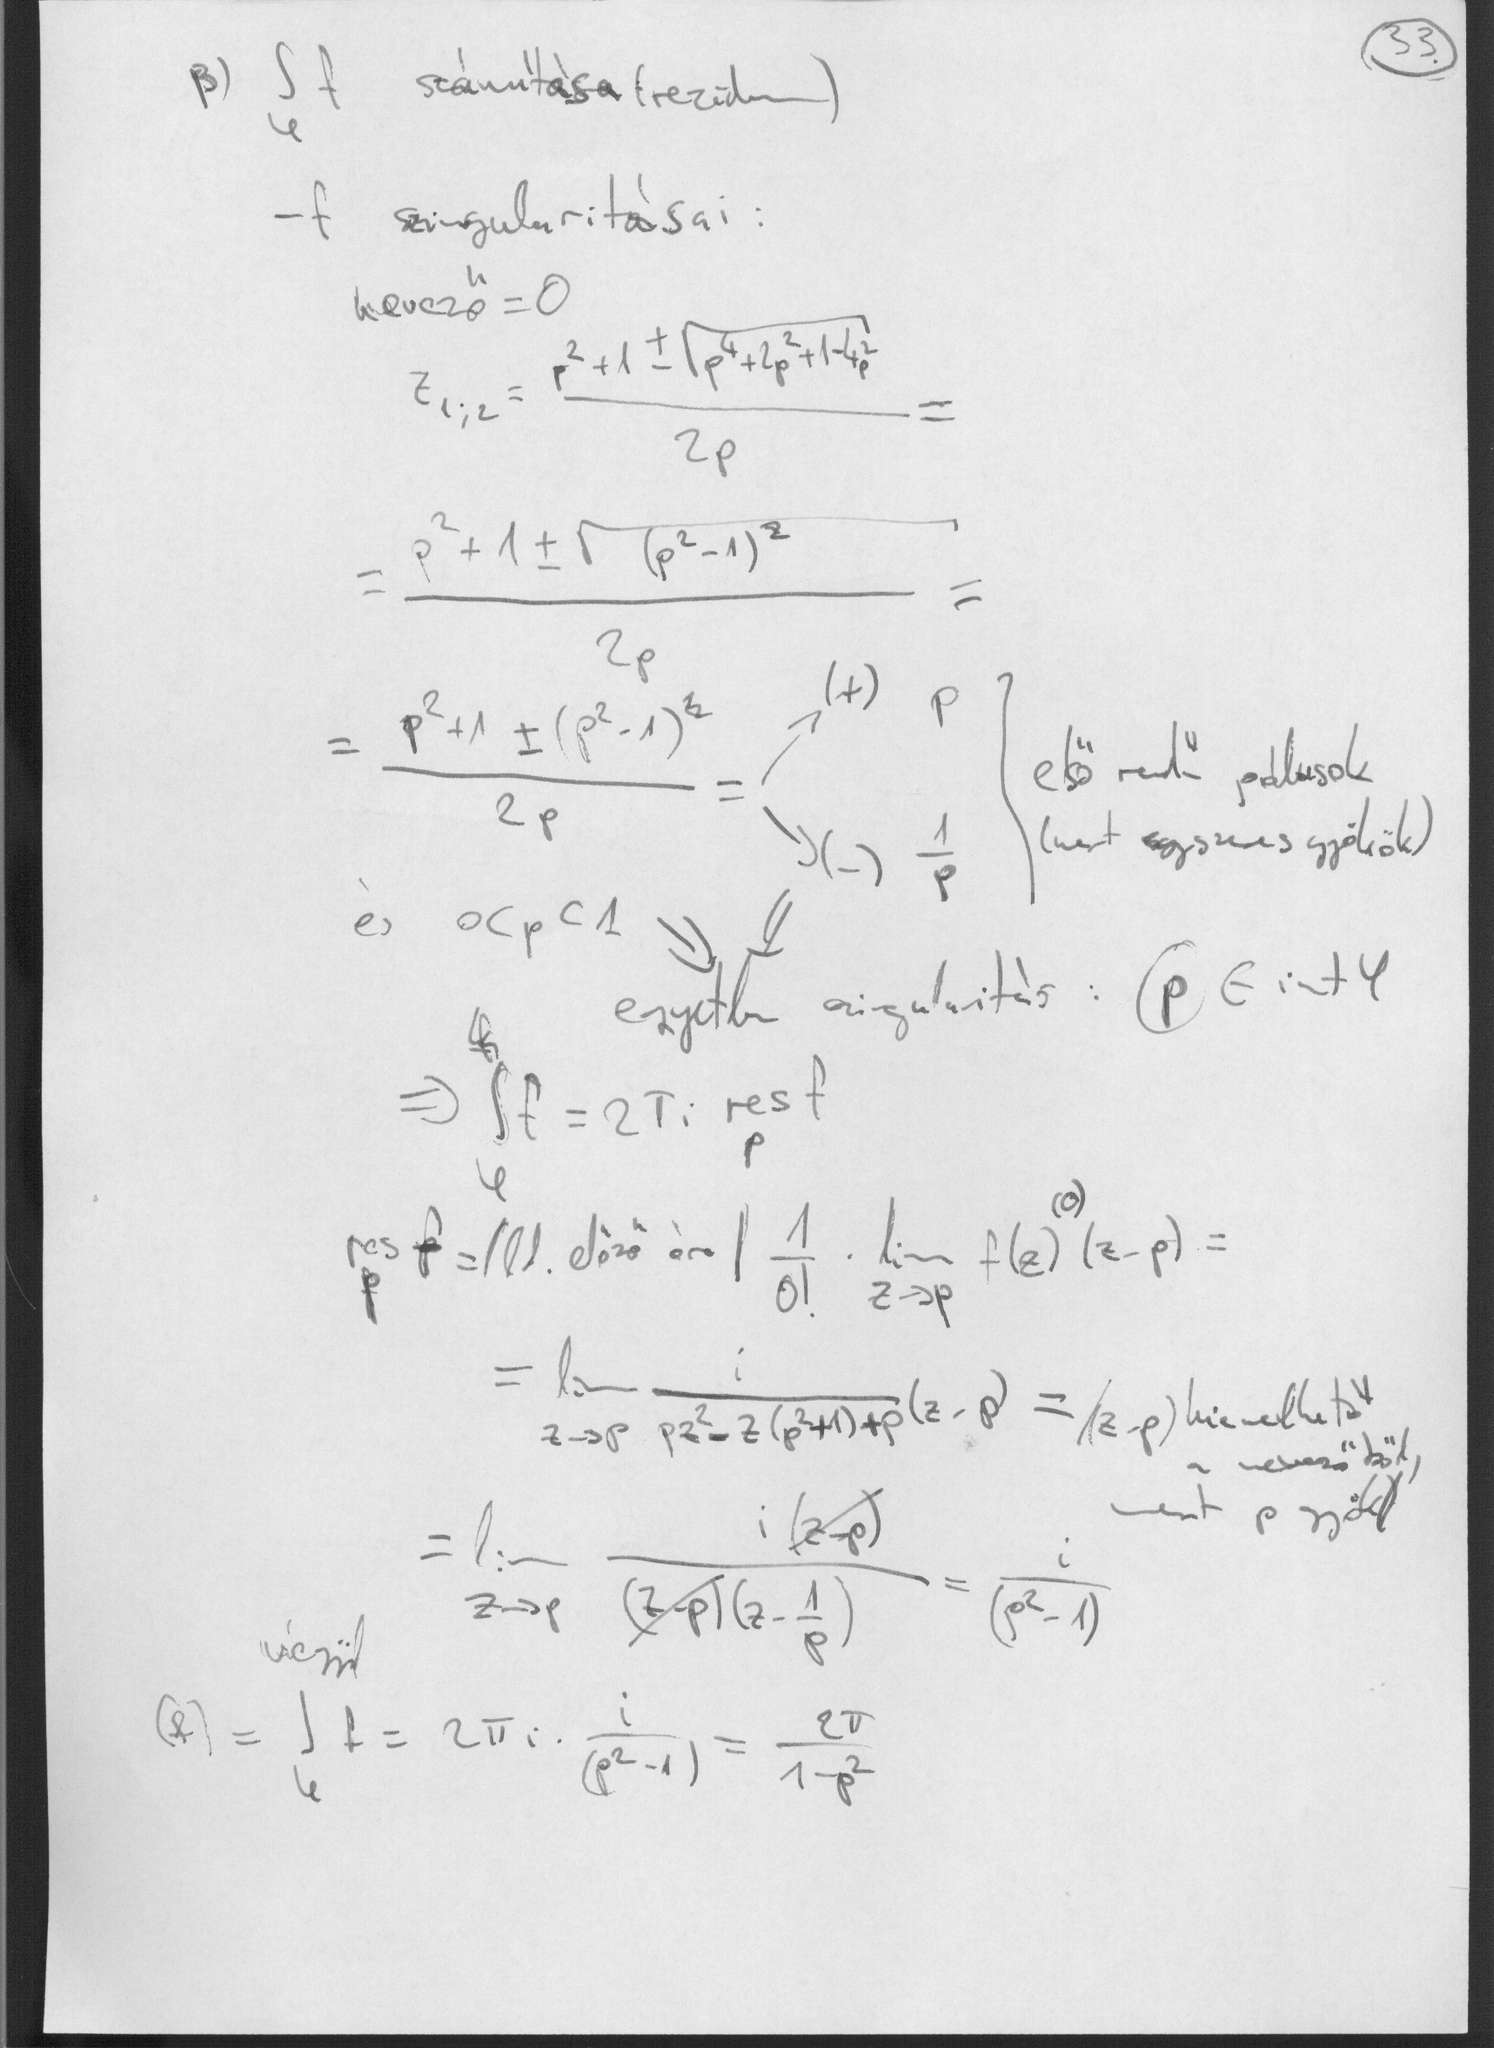 33.
β) ∫ f számítása (rezidum)
φ
- f szingularitásai:
nevező = 0
z₁;₂ = (p² + 1 ± √(p⁴ + 2p² + 1 - 4p²)) / 2p =
= (p² + 1 ± √((p² - 1)²)) / 2p =
= (p² + 1 ± (p² - 1)²) / 2p = (+) p
(-) 1/p
első rendű pólusok
(mert egyszeres gyökök)
és 0 < p < 1
egyetlen szingularitás: p ∈ int φ
⇒ ∫ f = 2πi res f
φ p
res f = / ld. előző óra / 1/0! · lim f(z)⁽⁰⁾ (z - p) =
p z→p
= lim i / (pz² - z(p² + 1) + p) (z - p) = /(z - p) kiemelhető
z→p
a nevezőből,
mert p gyök/
= lim i(z - p) / ((z - p)(z - 1/p)) = i / (p² - 1)
z→p
végül
(*) = ∫ f = 2πi · i / (p² - 1) = 2π / (1 - p²)
φ